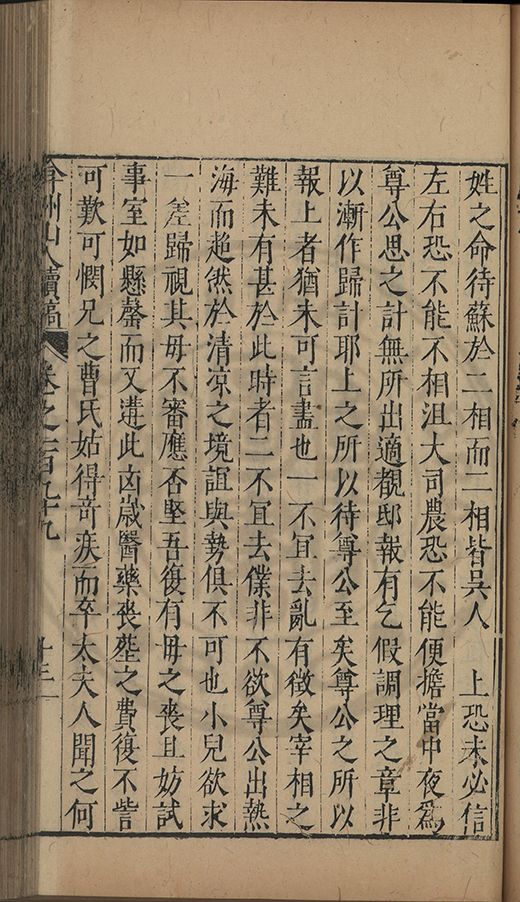 姓之命待蘇於二相而二相皆吳人　上恐未必信
左右恐不能不相沮大司農恐不能便擔當中夜爲
尊公思之計無所出適覩邸報有乞假調理之章非
以漸作歸計耶上之所以待尊公至矣尊公之所以
報上者猶未可言盡也一不宜去亂有徵矣宰相之
難未有甚於此時者二不宜去僕非不欲尊公出熱
海而超然於清凉之境誼與勢俱不可也小兒欲求
一差歸視其母不審應否堅吾復有母之喪且妨試
事室如懸罄而又遘此凶歲醫藥喪塟之費復不訾
可歎可憫兄之曹氏姑得奇疾而卒太夫人聞之何
弇州山人續稿　卷之一百九十九　十三